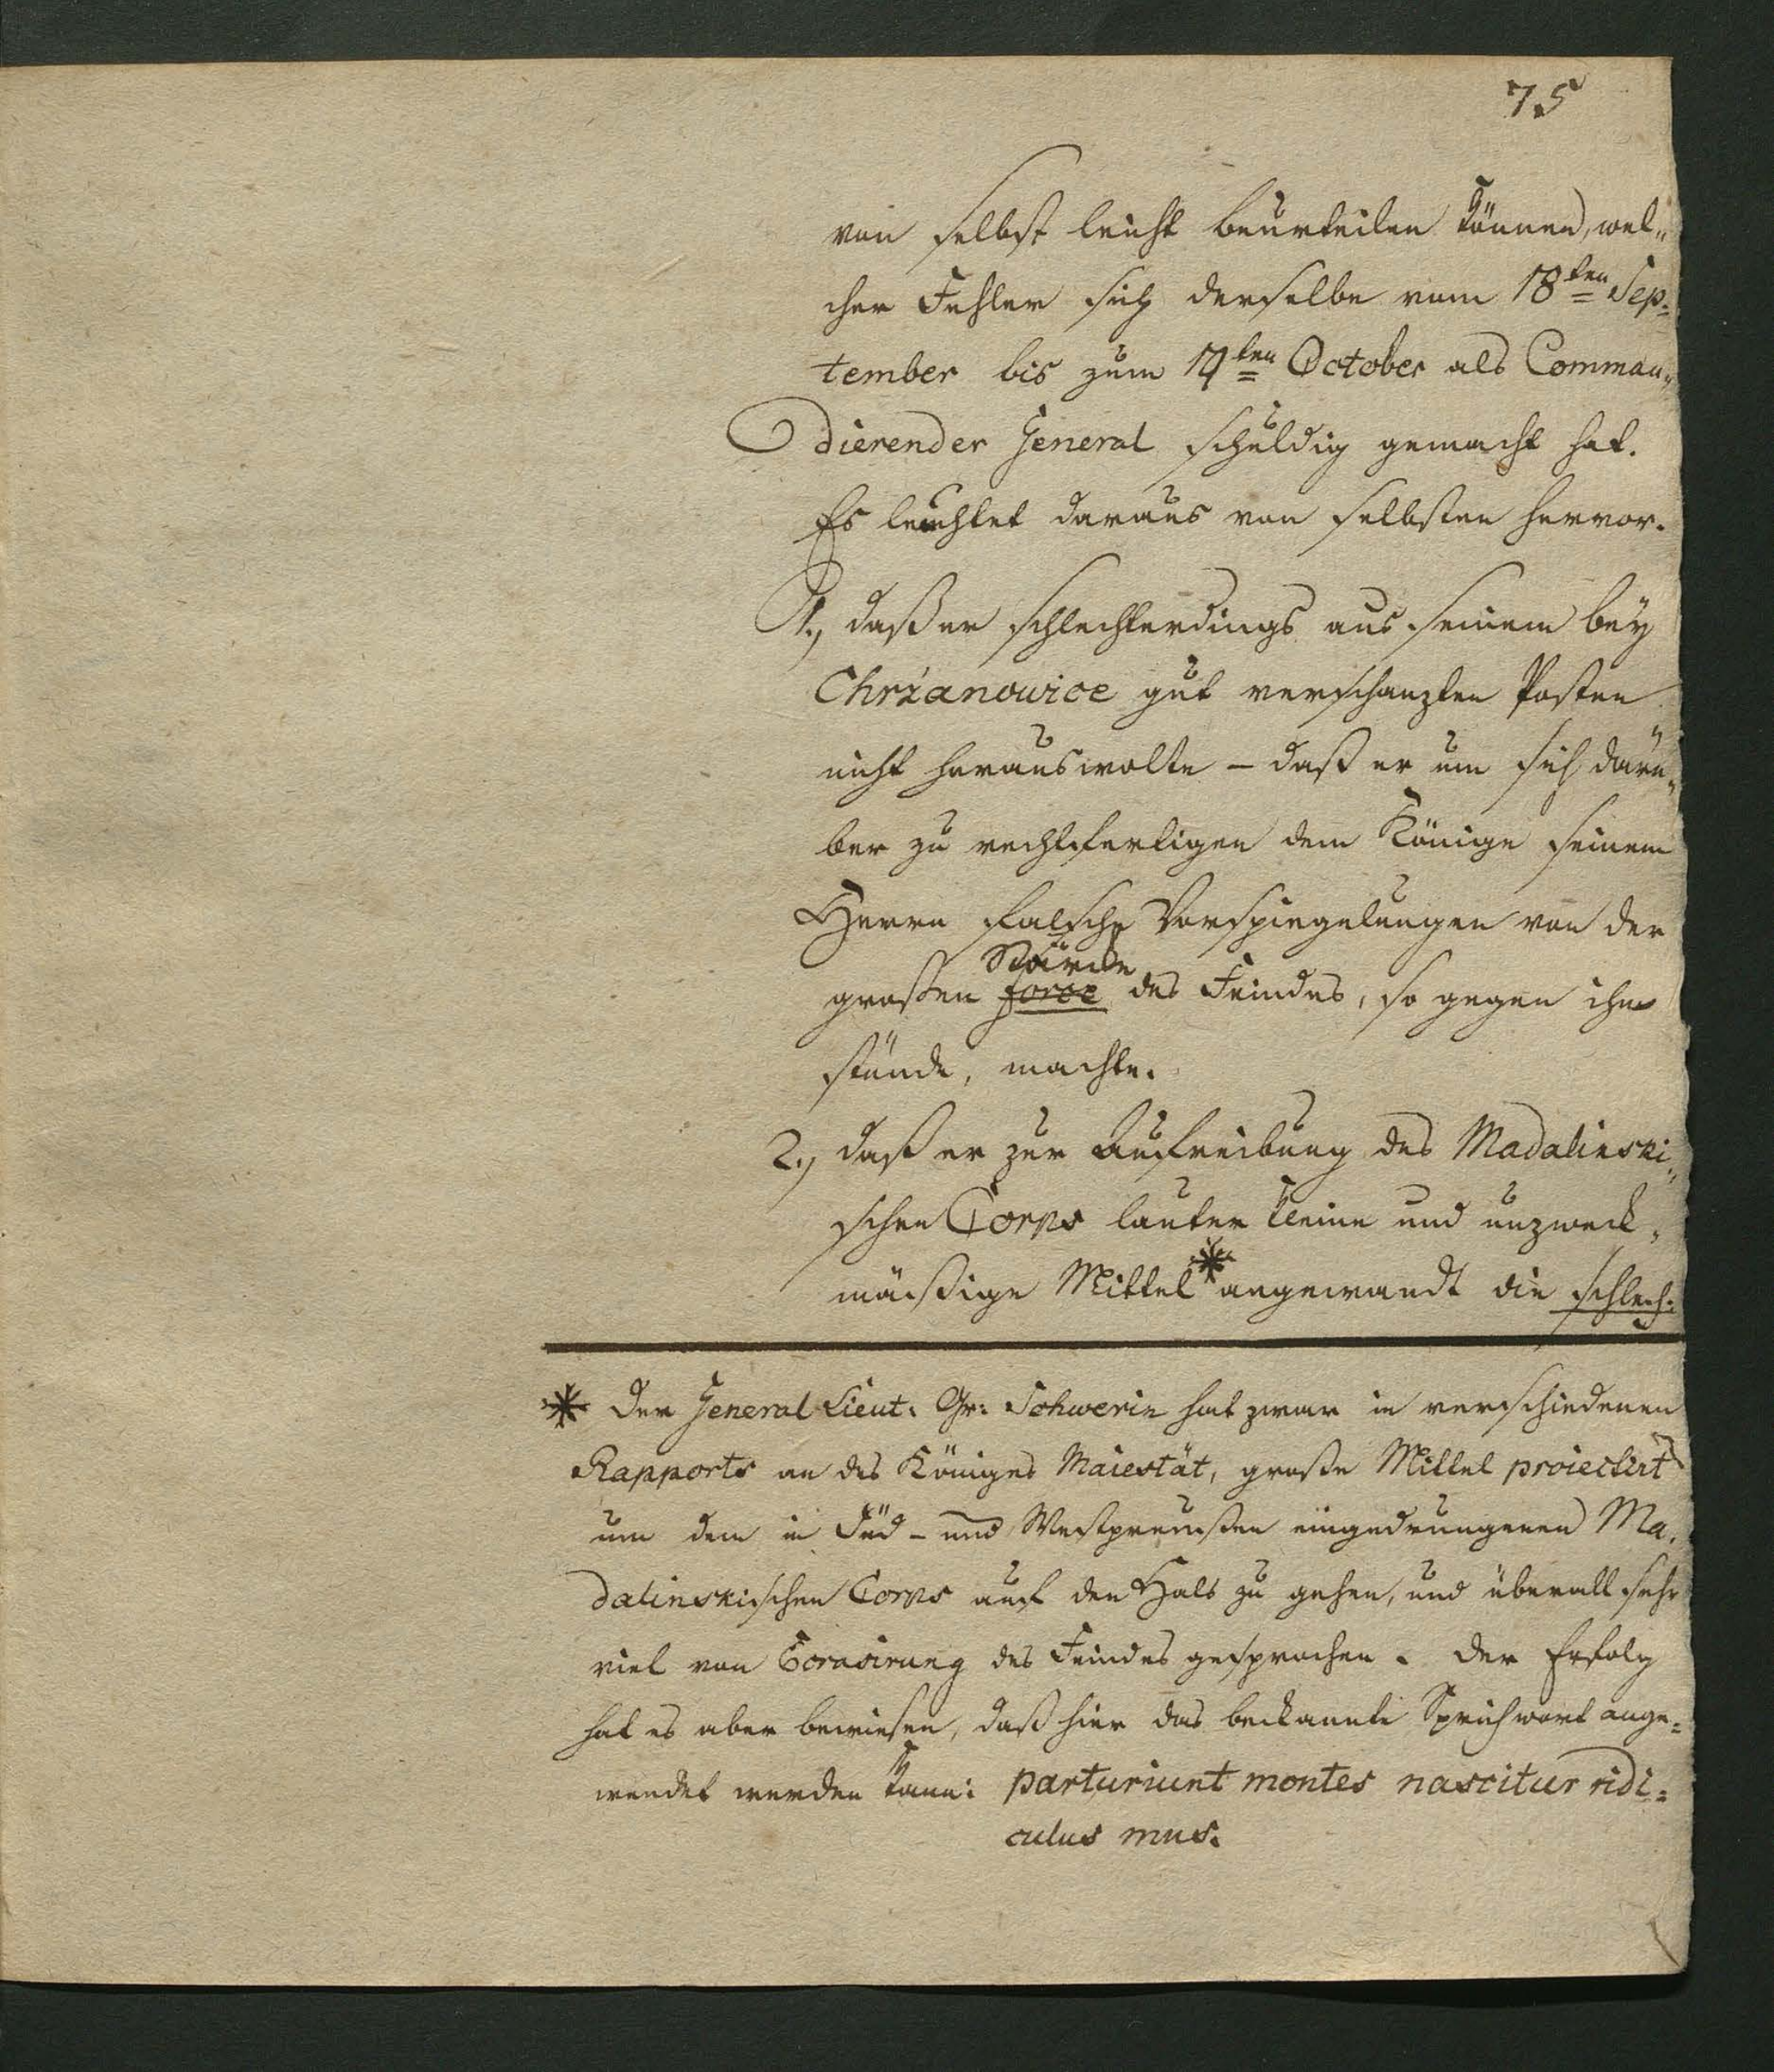 75
von selbst leicht beurteilen können, wel„
cher Fehler sich derselbe vom 18ten Sep„
tember bis zum 19ten October als Comman„
dierender General schuldig gemacht hat.
Es leuchtet daraus von selbsten hervor.
1., daß er schlechterdings aus seinem bey
Chrzanowice gut verschanzten Posten
nicht herauswolte – daß er um sich darü„
ber zu rechtfertigen dem Könige seinem
Herrn falsche Vorspiegelungen von der
Stärcke
großen force des Feindes, so gegen ihm
stünde, machte.
2., daß er zur Aufreibung des Madalinski„
schen Corps lauter kleine und unzweck„
mäßige Mittel * angewandt die schlech„
* Der General Lieut. Gr: Schwerin hat zwar in verschiedenen
Rapports an des Königes Maiestät, große Mittel proiectirt
um dem in Süd- und Westpreussen eingedrungenen Ma„
dalinskischen Corps auf den Hals zu gehen, und überall sehr
viel von Ecrasirung des Feindes gesprochen. Der Erfolg
hat es aber bewiesen, daß hier das bekannte Sprichwort ange=
wendet werden kann: parturiunt montes nascitur ridi=
culus mus.